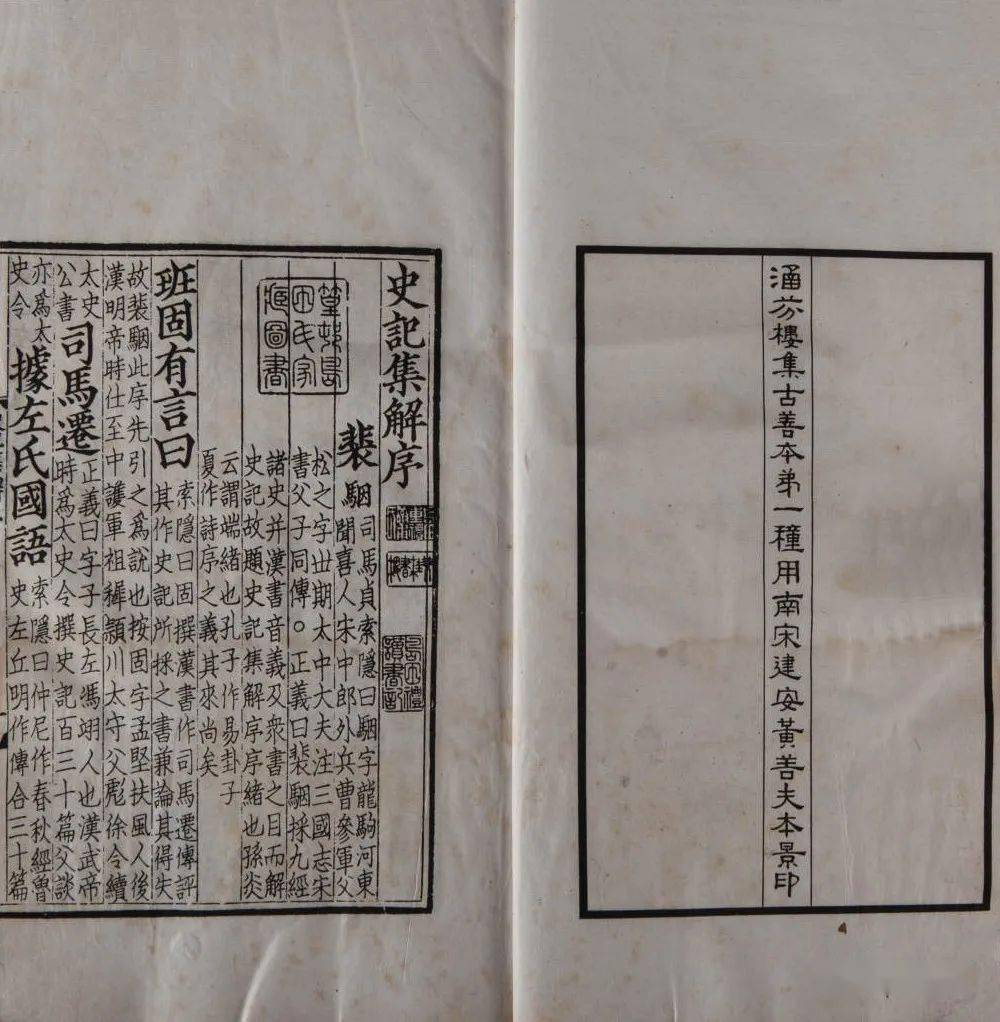 涵芬樓集古善本弟一種用南宋建安黃善夫本景印
史記集解序
裴駰
司馬貞索隱曰駰字龍駒河東
聞喜人宋中郎外兵曹參軍父
松之字世期太中大夫注三國志宋
書父子同傳。正義曰裴駰採九經
諸史并漢書音義及衆書之目而解
史記故題史記集解序序緒也孫炎
云謂端緒也孔子作易卦子
夏作詩序之義其來尚矣
篁邨島
田氏家
藏圖書
讀書記
班固有言曰
索隱曰固撰漢書作司馬遷傳評
其作史記所採之書兼論其得失
故裴駰此序先引之爲說也按固字孟堅扶風人後
漢明帝時仕至中護軍祖穉潁川太守父彪徐令續
太史
公書
司馬遷
正義曰字子長左馮翊人也漢武帝
時爲太史令撰史記百三十篇父談
亦爲太
史令
據左氏國語
索隱曰仲尼作春秋經魯
史左丘明作傳合三十篇